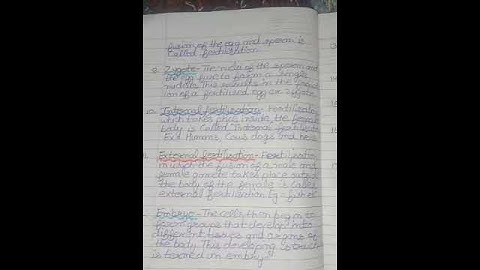 fusion of the egg and sperm is
called fertilisation
9. Zygote - The nuclei of the sperm and
the egg fuse to form a single
nucleus. This results in the format
ion of a fertilised egg or zygote
10. Internal fertilisation - Fertilisation
which takes place inside the female
body is called internal fertilisation
Ex: Humans, Cows dogs and hens
External fertilisation - Fertilisation
in which the fusion of a male and
female gamete takes place outside
the body of the female is called
external fertilisation Eg = fish
Embryo - The cells then begin to
form groups that develop into
different tissues and organs of
the body. This developing structure
is termed an embryo